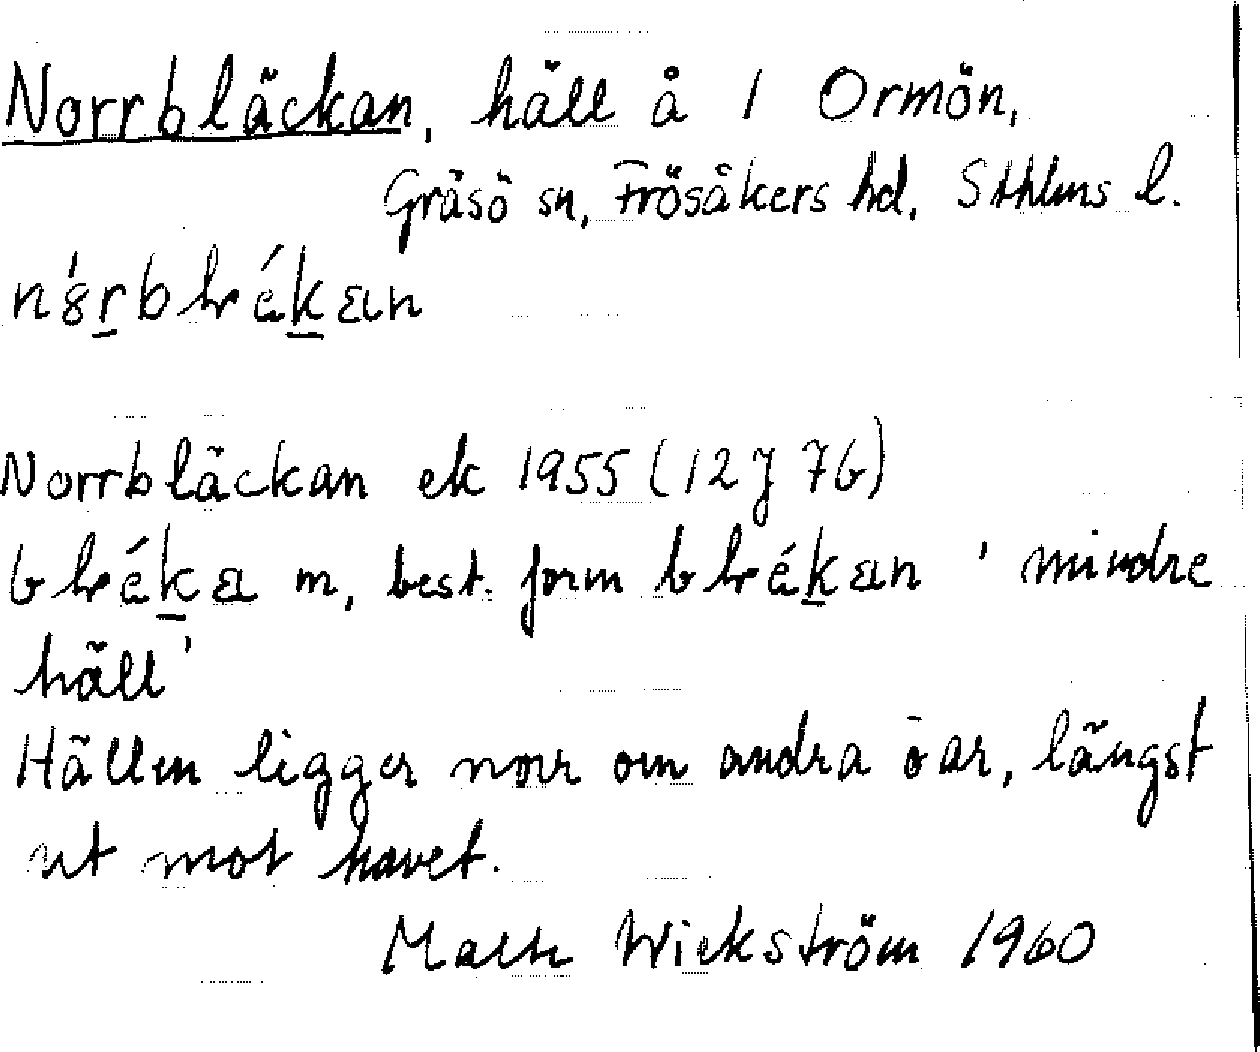 Norrbläckan, häll å 1 Ormön,
Gräsö sn, Frösåkers hd, Sthlms l.
Norrbläckan ek 1955 (12 J 7b)
m, best. form ' mindre
häll'
Hällen ligger norr om andra öar, längst
ut mot havet.
Malte Wickström 1960